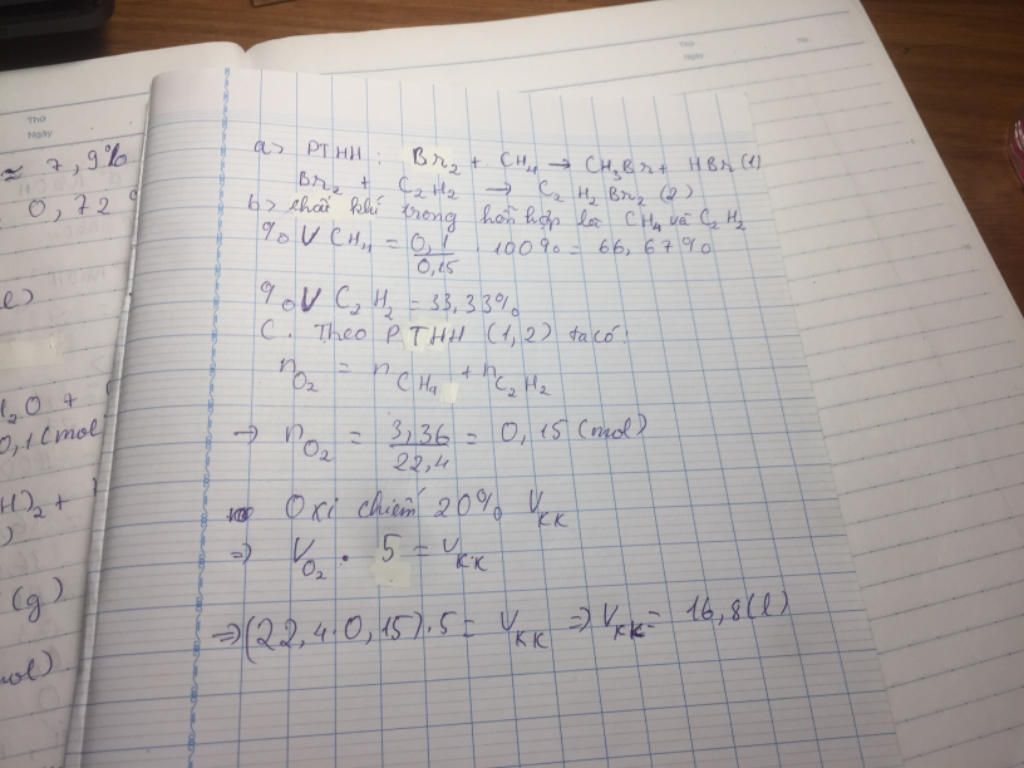 Thứ
Ngày
Thứ
Ngày
No.
≈ 7,9%
0,72 g
l)
H2O +
0,1 (mol
H)2 +
)
(g)
mol)
a> PTHH : Br2 + CH4 → CH3Br + HBr (1)
Br2 + C2H2 → C2H2Br2 (2)
b> chất khí trong hỗn hợp là CH4 và C2H2
% V CH4 = 0,1/0,15 . 100% = 66,67%
% V C2H2 = 33,33%
C. Theo PTHH (1,2) ta có:
nO2 = nCH4 + nC2H2
→ nO2 = 3,36/22,4 = 0,15 (mol)
Oxi chiếm 20% VKK
⇒ VO2 . 5 = VKK
⇒ (22,4.0,15).5 = VKK ⇒ VKK = 16,8(l)